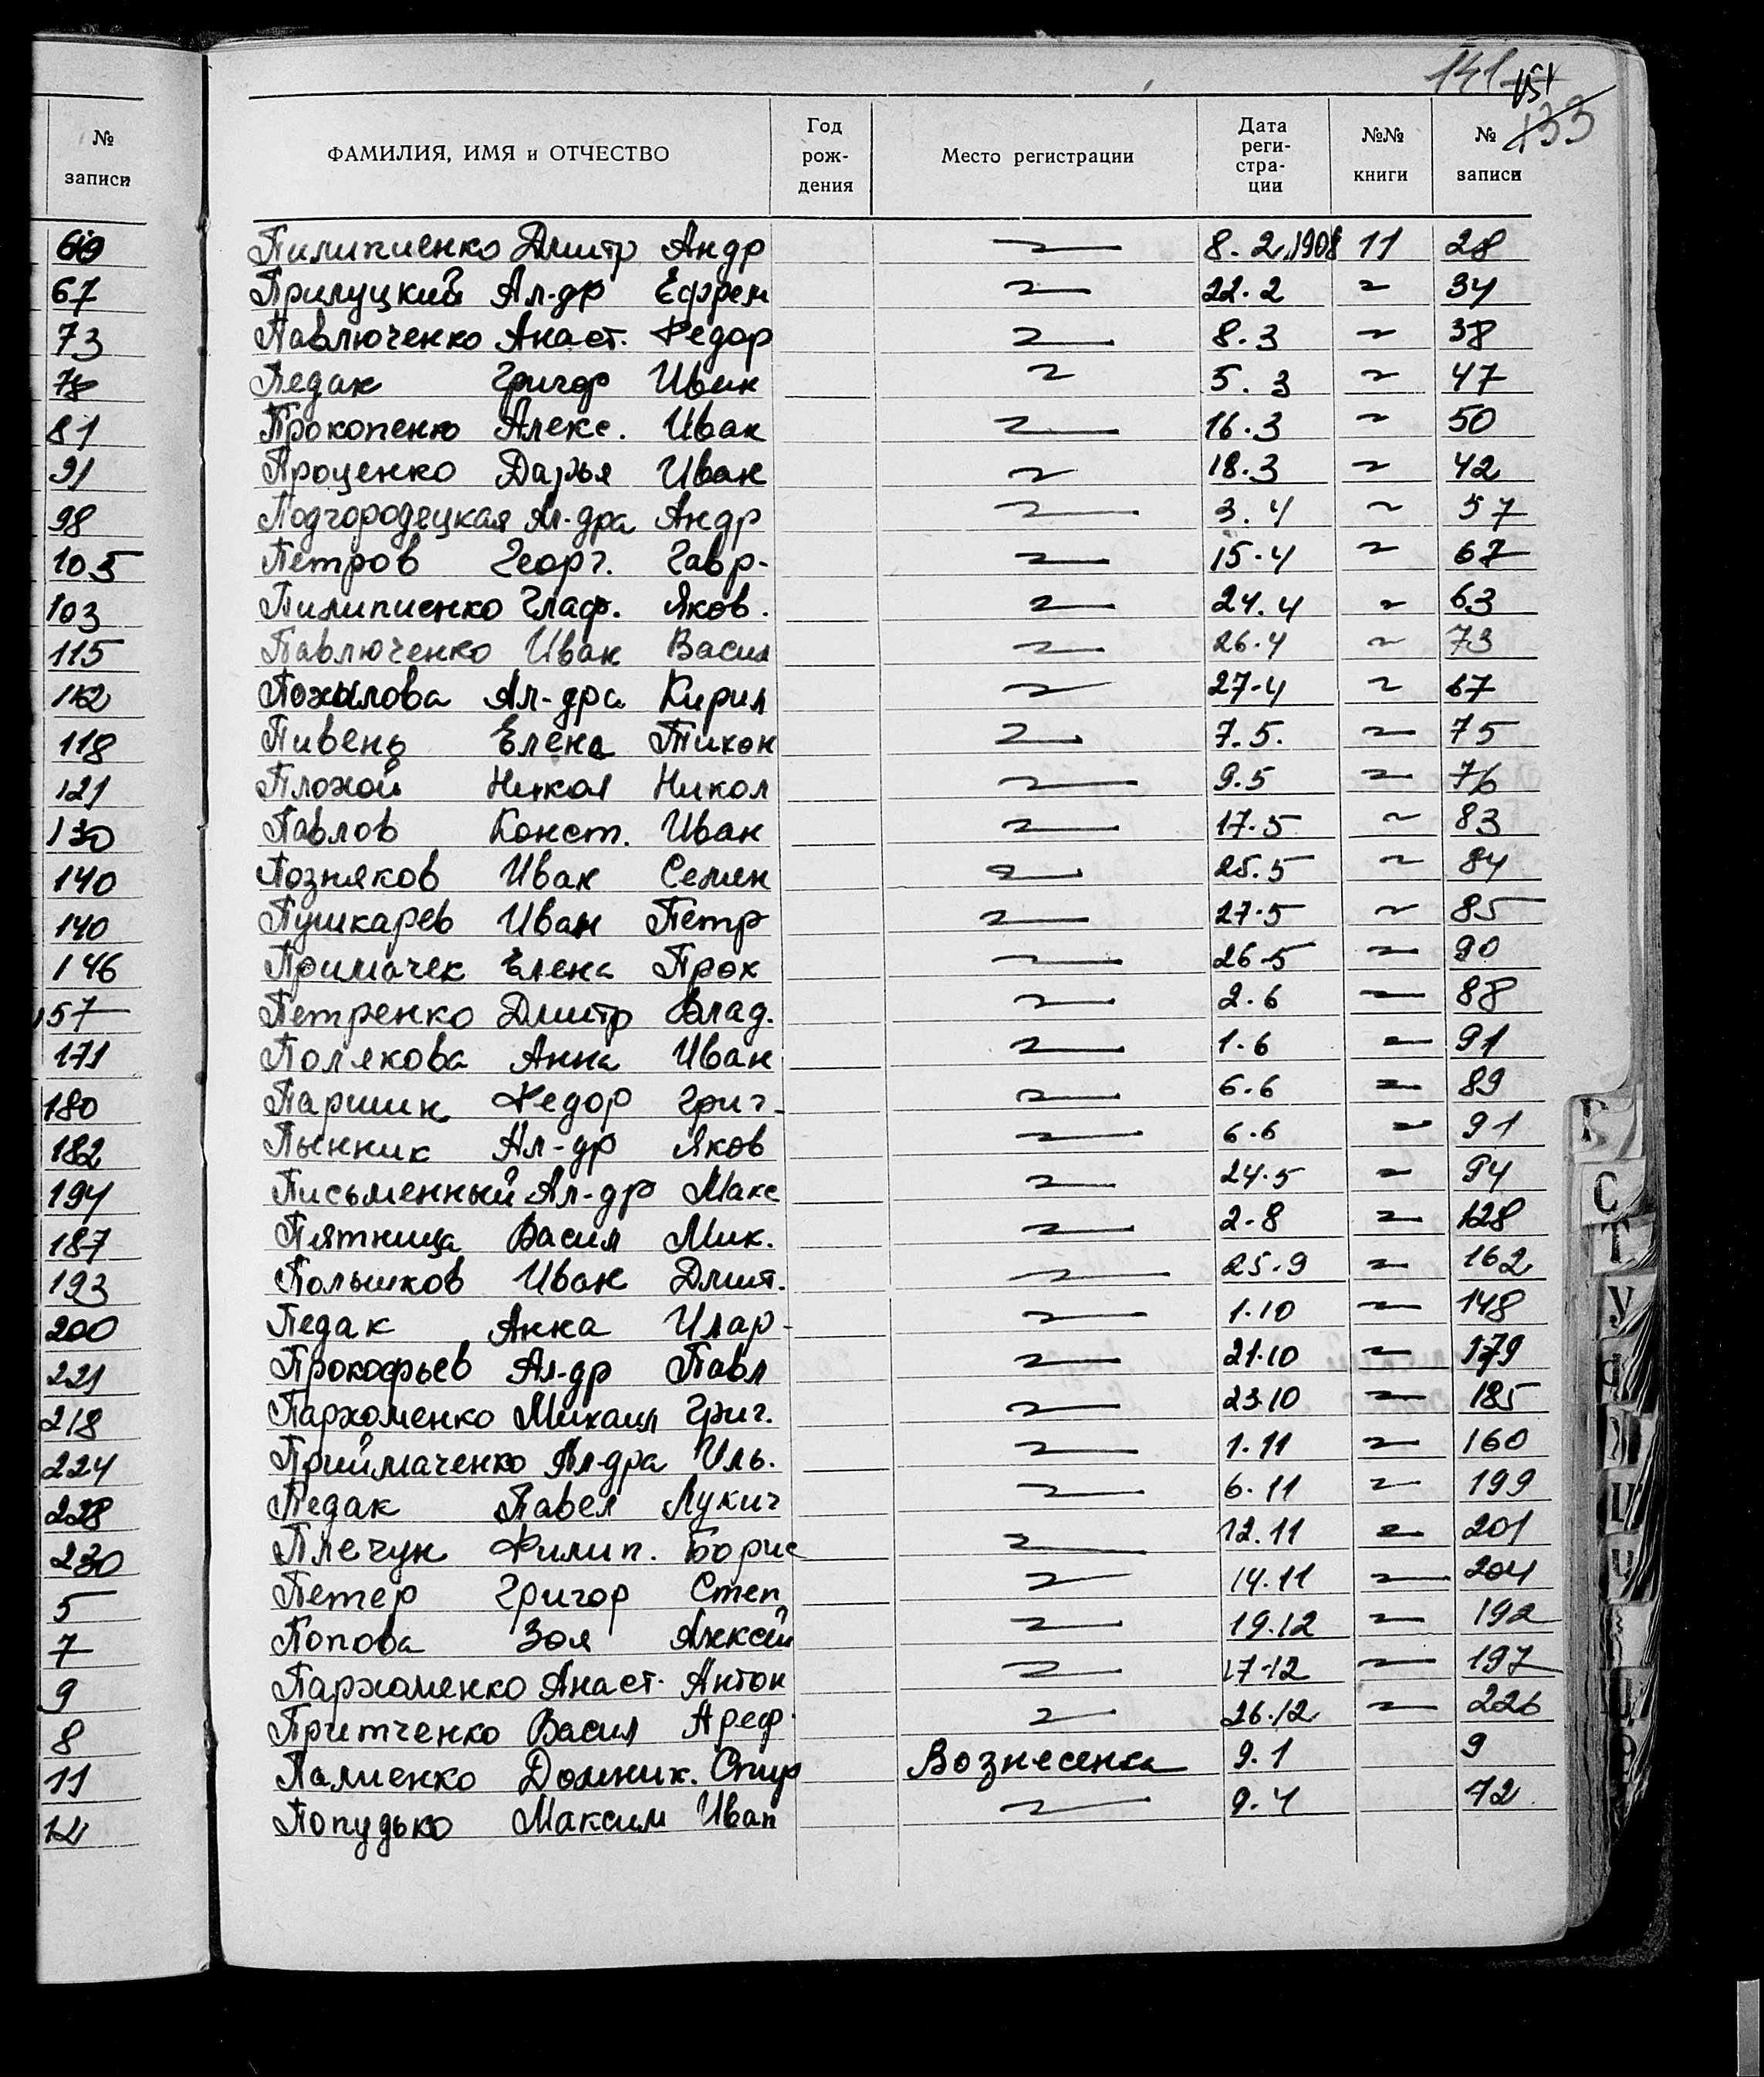 141
151
133
№ записи
ФАМИЛИЯ, ИМЯ и ОТЧЕСТВО Год рож- дения Место регистрации Дата реги- стра- ции №№ книги № записи
69 Пилипиенко Дмитр Андр 8.2.1908 11 28
67 Прилуцкий Ал-др Ефрем 22.2 34
73 Павлюченко Анаст. Федор 8.3 38
78 Педак Григор Иван 5.3 47
81 Прокопенко Алекс. Иван 16.3 50
91 Проценко Дарья Иван 18.3 42
98 Подгородецкая Ал-дра Андр 3.4 57
105 Петров Георг. Гавр. 15.4 67
103 Пилипиенко Глаф. Яков. 24.4 63
115 Павлюченко Иван Васил 26.4 73
112 Похилова Ал-дра Кирил 27.4 67
118 Пивень Елена Тихон 7.5. 75
121 Плохой Никол Никол 9.5 76
130 Павлов Конст. Иван 17.5 83
140 Позняков Иван Семен 25.5 84
140 Пушкарев Иван Петр 27.5 85
146 Примачек Елена Прох 26.5 90
157 Петренко Дмитр Влад. 2.6 88
171 Полякова Анна Иван 1.6 91
180 Паршин Федор Григ. 6.6 89
182 Пынник Ал-др Яков 6.6 91
194 Письменный Ал-др Макс 24.5 94
187 Пятница Васил Мик. 2.8 128
193 Польшков Иван Дмит. 25.9 162
200 Педак Анна Илар. 1.10 148
221 Прокофьев Ал-др Павл 21.10 179
218 Пархоменко Михаил Григ. 23.10 185
224 Прийmаченко Ал-дра Иль. 1.11 160
228 Педак Павел Лукич 6.11 199
230 Плечун Филип. Борис 12.11 201
5 Петер Григор Степ 14.11 204
7 Попова Зоя Алексей 19.12 192
9 Пархоменко Анаст. Антон 17.12 197
8 Притченко Васил Ареф. 26.12 226
11 Палиенко Домник. Спир Вознесенка 9.1 9
12 Попудько Максим Иван 9.4 72
С
Т
У
Ц
Ч